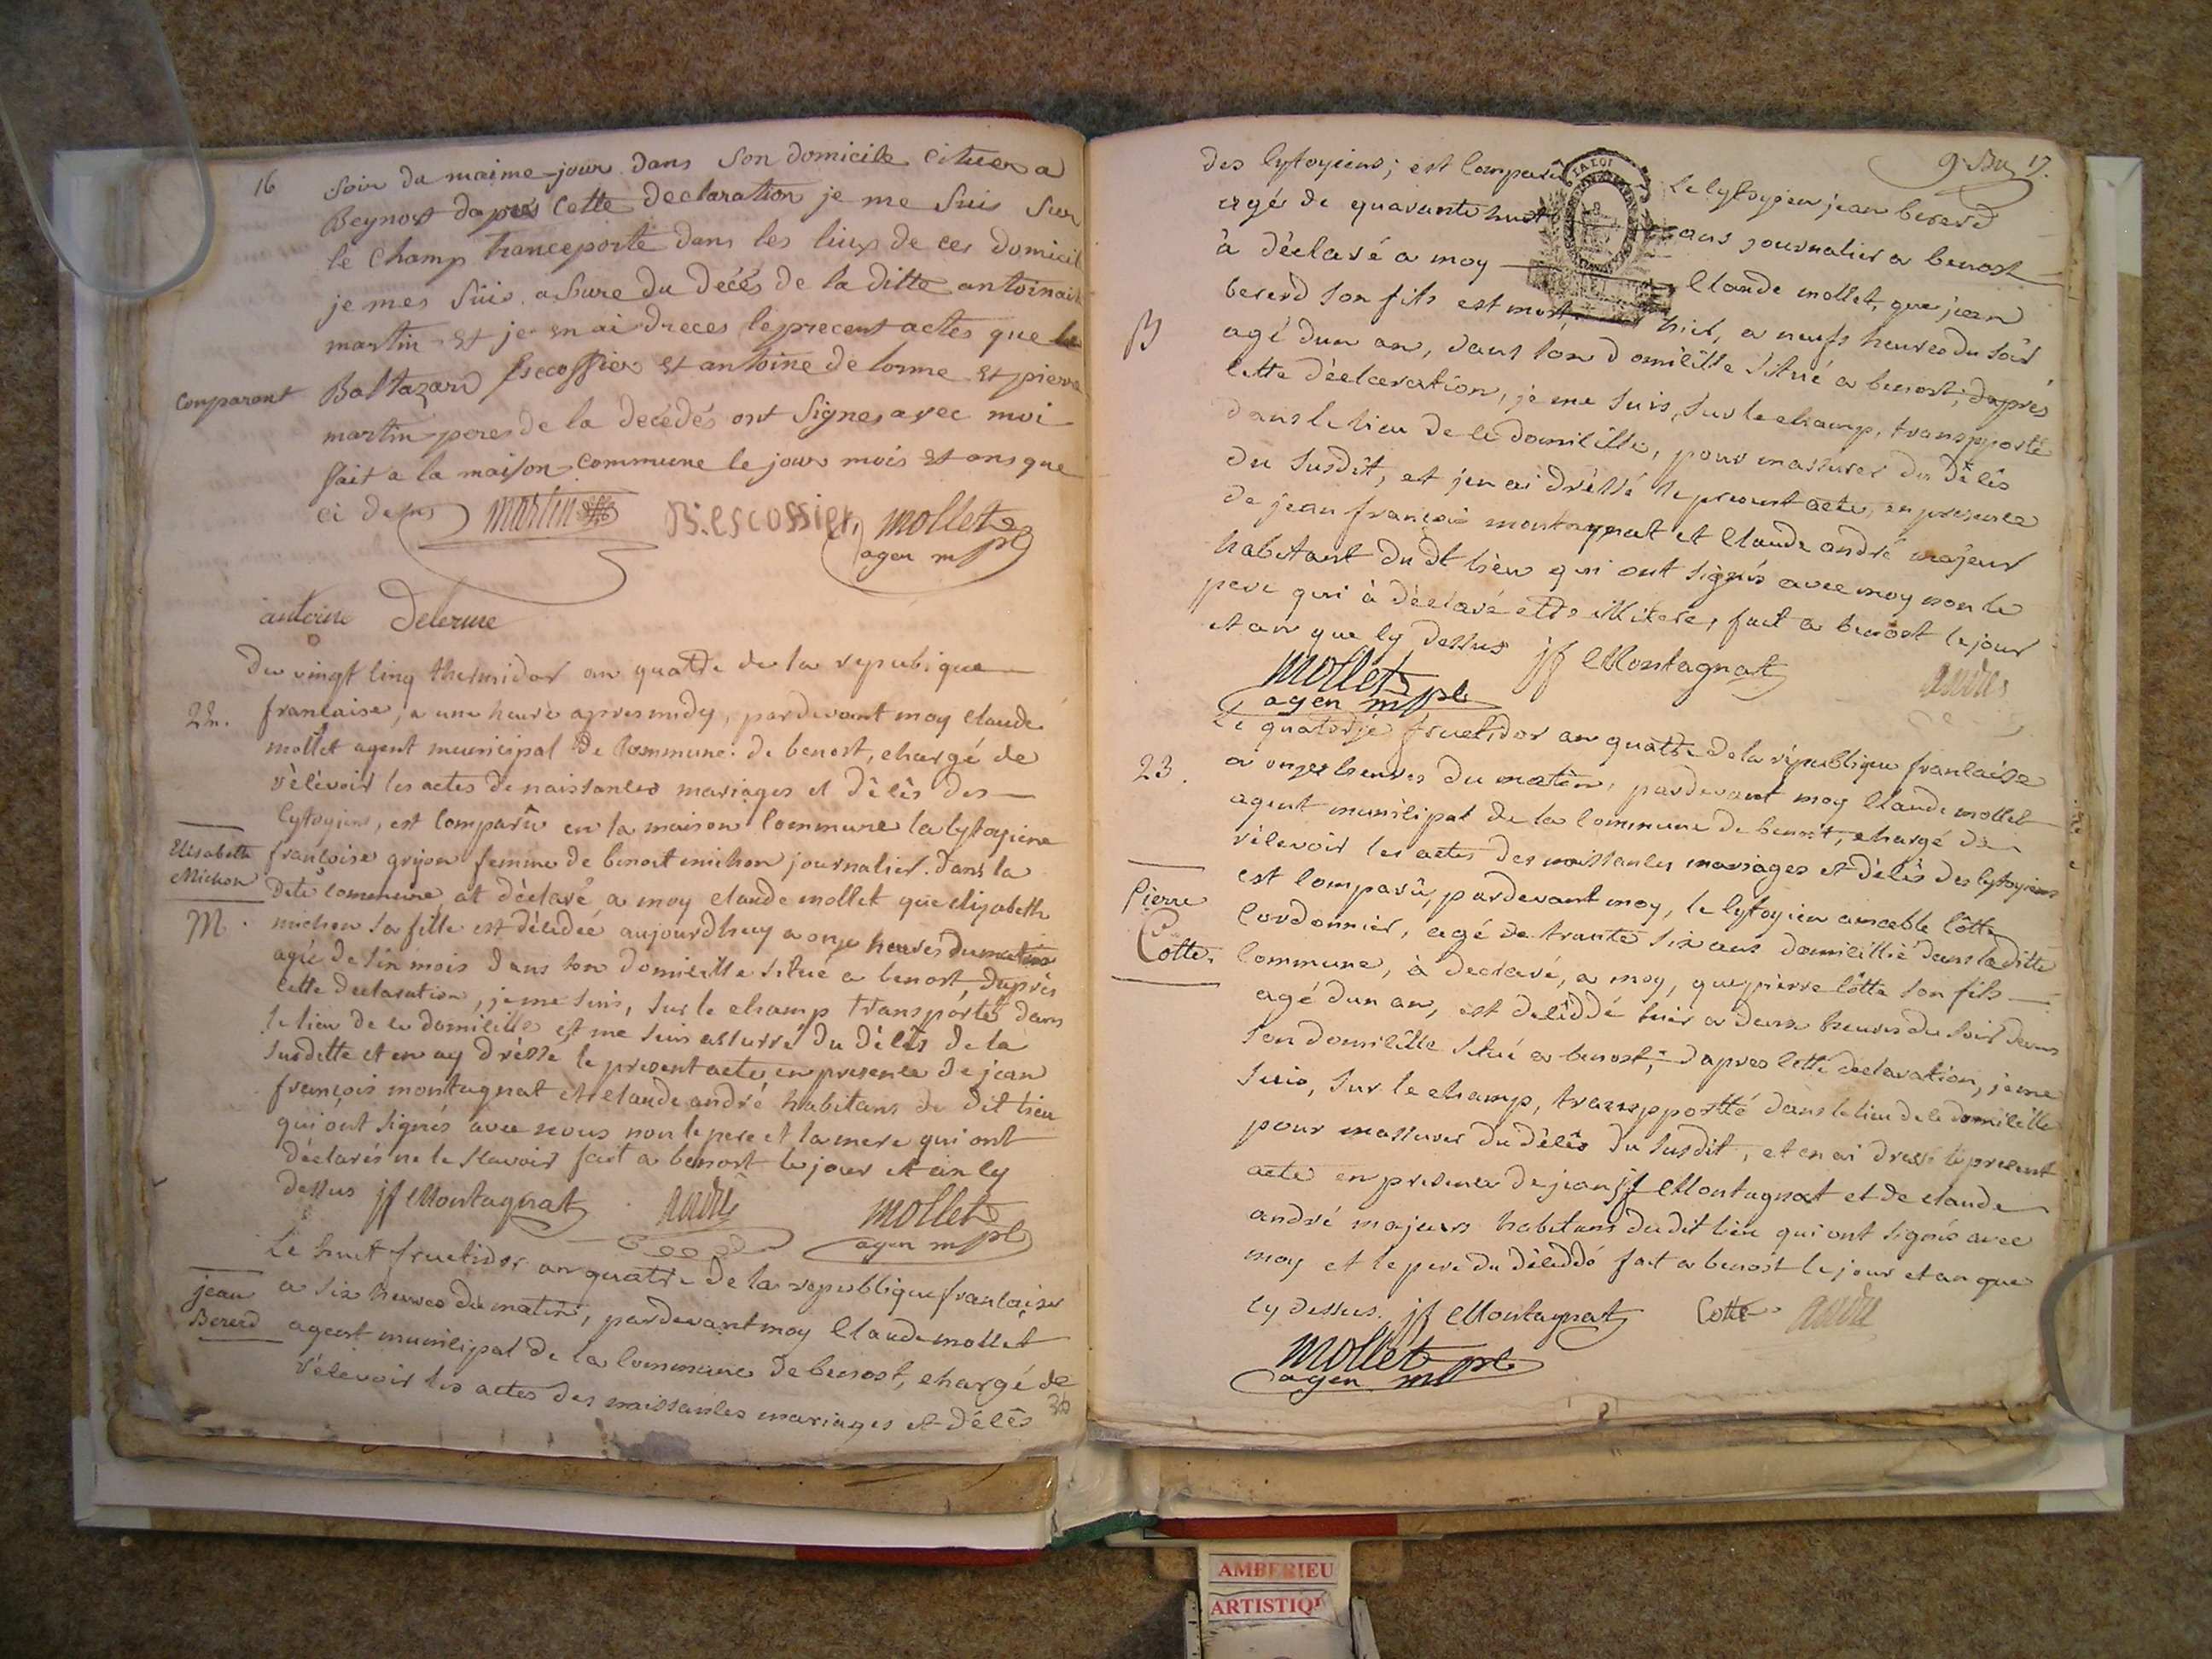 16
Soir du maime jour dans son domicile cituer a
Beynost daprés cette declaration je me suis sur
le champ tranceporté dans les liux de ces domicil
je mes suis asure du décés de la ditte antoinait
martin et je en ai dreces le precent actes que
comparant
Baltazard Escoffier et antoine delorme et pierre
martin peres de la decédés ont signes avec moi
fait a la maison commune le jour mois et ans que
ci desus martin B. escossier mollet
agen mpl
antoine Delorme
du vingt cinq thermidor an quatre de la republique
22.
francaise, a une heure apres midy, pardevant moy Claude
mollet agent municipal de commune de benost, chargé de
récevoir les actes de naissances mariages et décès des
cytoyiens, est comparû en la maison commune la cytoyiene
Elisabeth
Michon
françoise grijon femme de benoit michon journalier dans la
dite commune, at déclaré a moy claude mollet que elizabeth
M.
michon sa fille est décédée aujourdhuy a onze heures du matin
agée de six mois dans son domicille situé a benost, daprès
cette declaration, je me suis, sur le champ transporté dans
le lieu de ce domicille et me suis assurré du décès de la
susditte et en ay drésse le present acte en presence de jean
françois montagnat et claude andré habitans du dit lieu
qui ont signés avec nous non le pere et la mere qui ont
déclarés ne le scavoir fait a benost le jour et an cy
dessus jf Montagnat andré mollet
agen mpl
Le huit fructidor an quatre de la republique francaise
jean
Bererd
a six heures du matin, pardevant moy Claude mollet
agent municipal de la commune de benost, chargé de
récevoir les actes des naissances mariages et décès
9. Bre 17.
LA LOI
des cytoyiens; est comparû Le cytoyien jean bererd
agés de quarante huit ans journalier a benost
à déclaré a moy Claude mollet, que jean
bererd son fils est mort, hier, a neufs heures du soir
B
agé dun an, dans son domicille situé a benost, daprés
cette déclaration, je me suis, sur le champ, transpporté
dans le lieu de ce domicille, pour massurer du décès
du susdit, et jen ai dréssé le present acte, en presence
de jean françois montagnat et Claude andré majeur
habitant du dt lieu qui ont signés avec moy non le
pere qui à déclaré etre illitere, fait a benost le jour
et an que cy dessus jf Montagnat andré
mollet
agen mpl
Le quatorze fructidor an quatre de la république francaise
23.
a onzes heures du matin, pardevant moy Claude mollet
agent municipal de la commune de benost, chargé de
récevoir les actes des naissances mariages et décès des cytoyiens
Pierre
Cotte.
est comparû, pardevant moy, le cytoyien aimable côtte
Cordonnier, agé de trante six ans domicillié dans la ditte
commune, à declaré, a moy, que pierre côtte son fils
agé dun an, est deceddé hier a deux heures du soir dans
son domicille situé a benost, dapres cette declaration, je me
suis, sur le champ, transpportté dans le lieu de ce domicille
pour massurer du décès du susdit, et en ai dressé le present
acte en presence de jean jf Montagnat et de claude
andré majeurs habitans du dit lieu qui ont signés avec
moy et le pere du déceddé fait a benost le jour et an que
cy dessus. jf Montagnat Cotte andré
mollet
agen mpl
AMBERIEU
ARTISTIQ